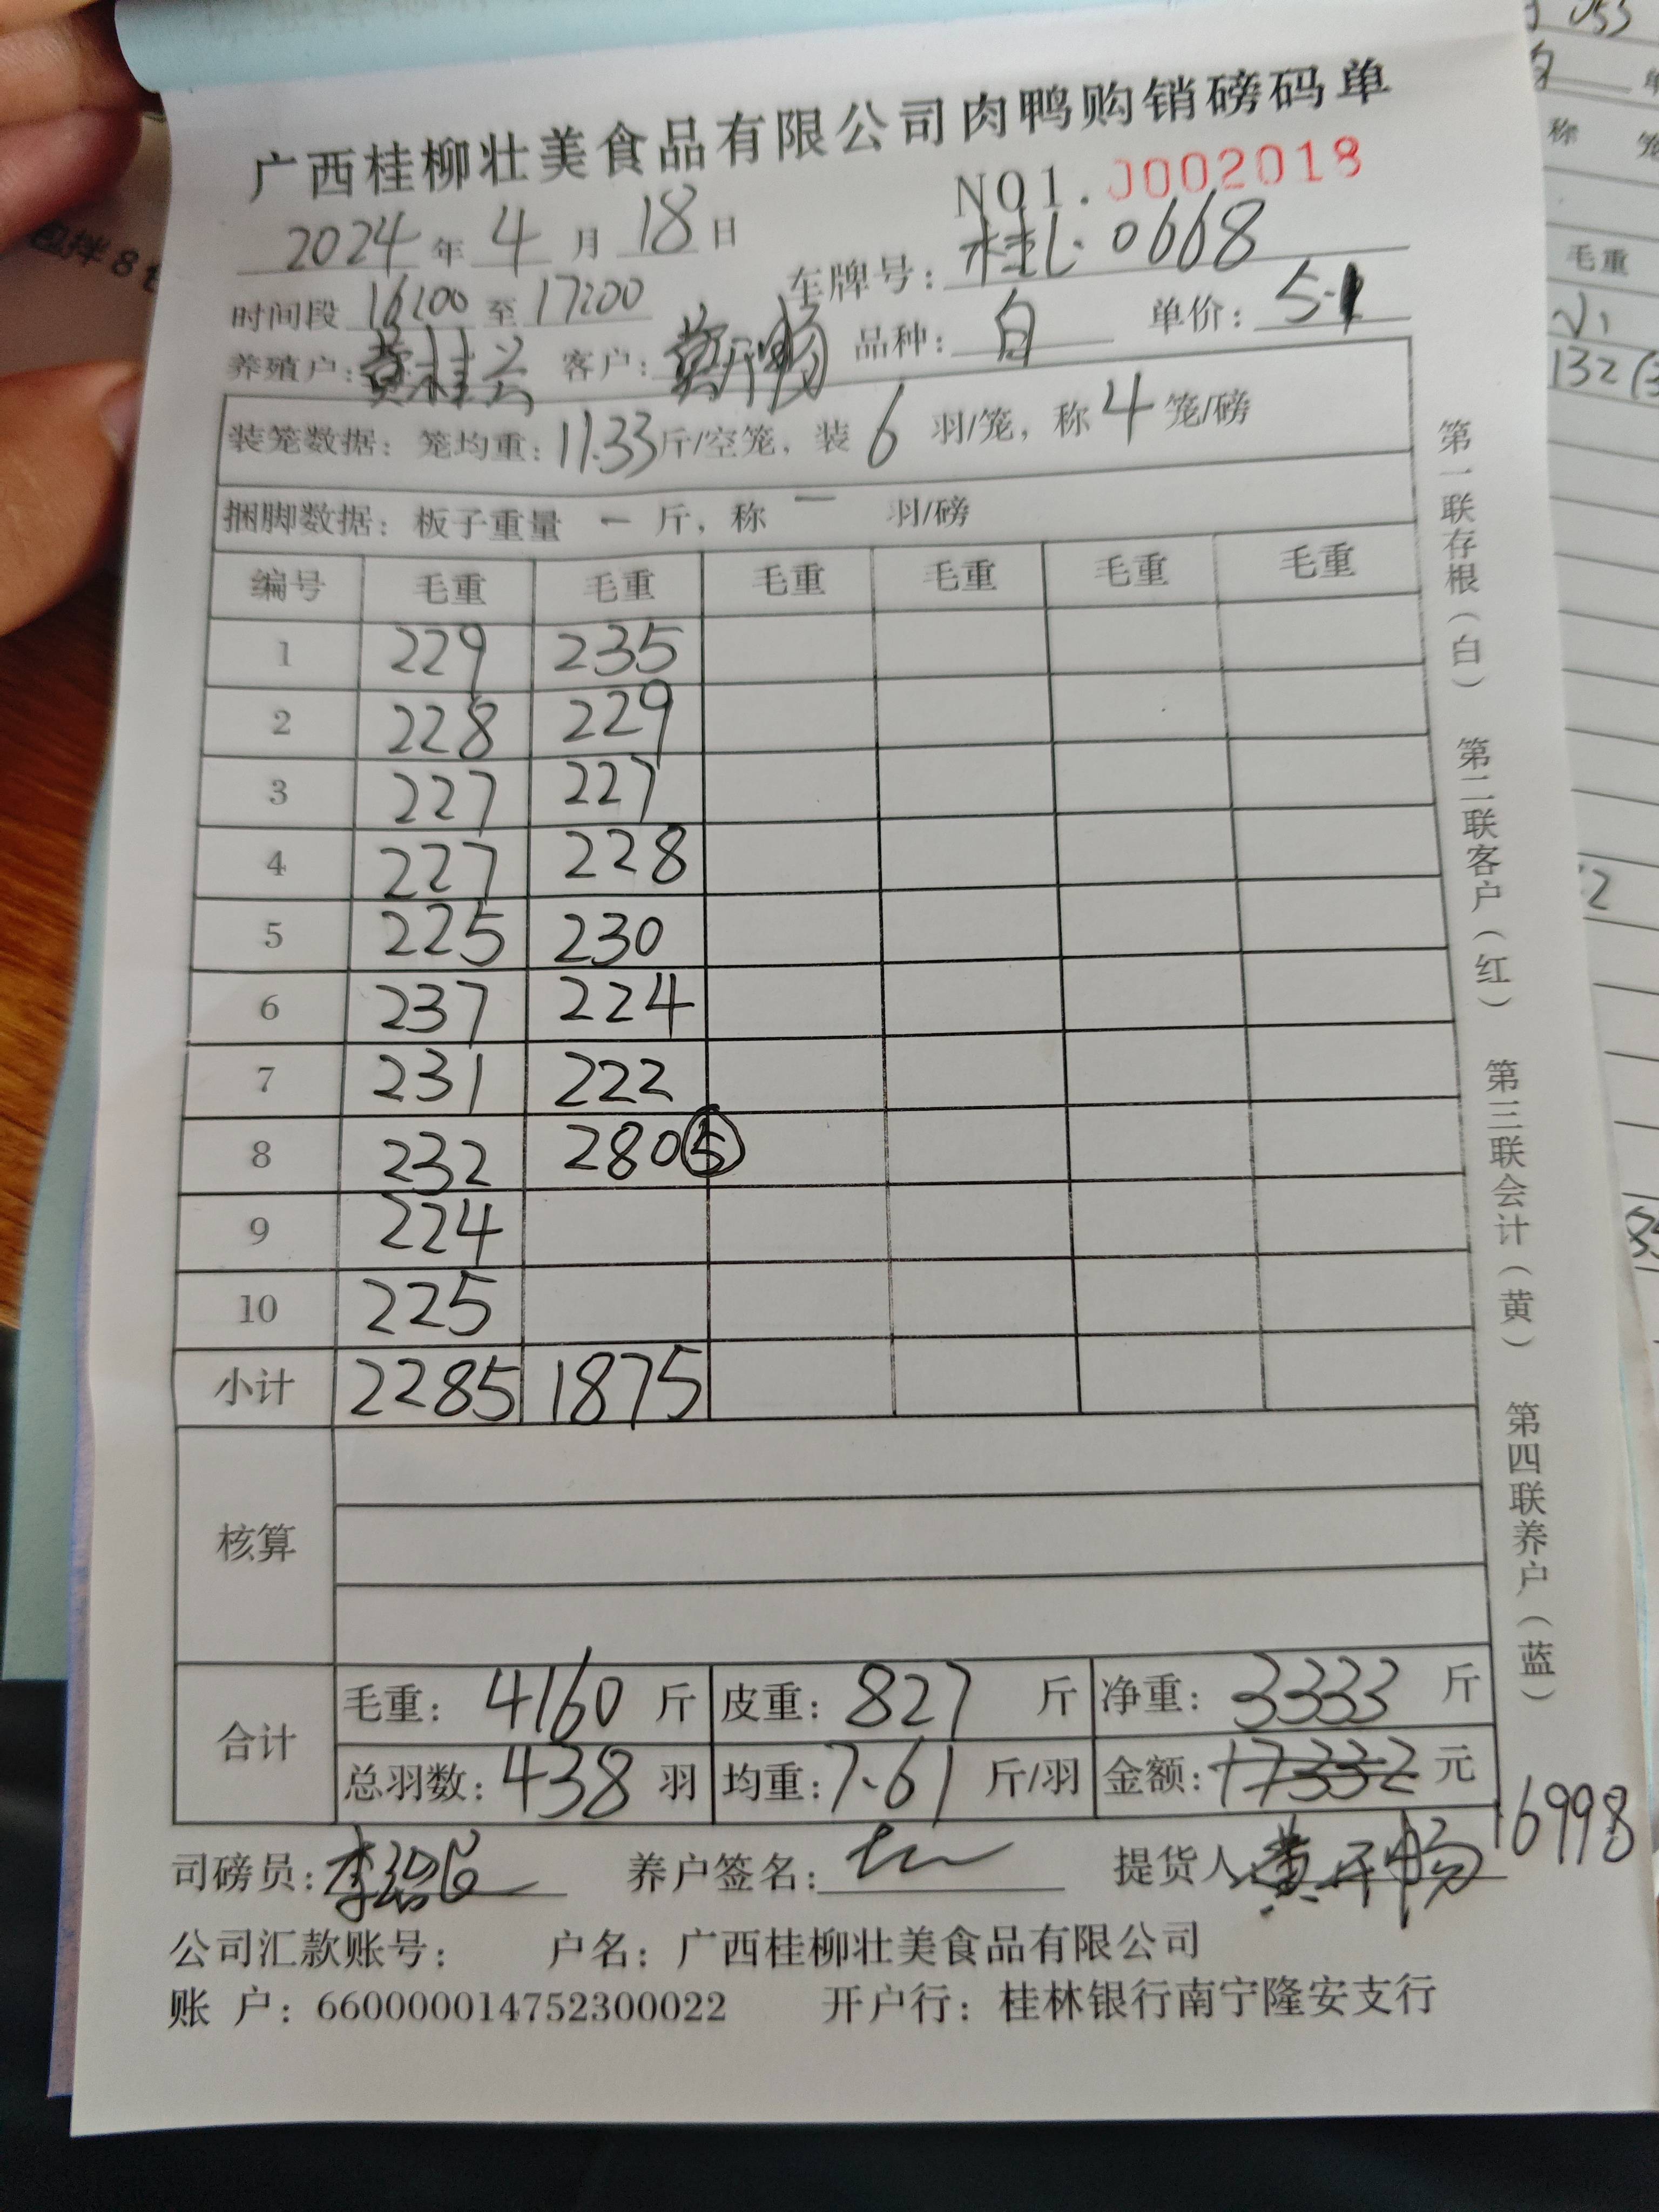 广西桂柳壮美食品有限公司肉鸭购销磅码单
NO1.J002018
2024 年 4 月 18 日
车牌号: 桂L·0668
时间段 16:00 至 17:00
养殖户: 黄桂芸 客户: 品种: 白 单价: 5.1
装笼数据: 笼均重: 11.33 斤/空笼, 装 6 羽/笼, 称 4 笼/磅
捆脚数据: 板子重量 一 斤, 称 一 羽/磅
编号 毛重 毛重 毛重 毛重 毛重 毛重
1 229 235
2 228 229
3 227 227
4 227 228
5 225 230
6 237 224
7 231 222
8 232 280 5
9 224
10 225
小计 2285 1875
核算
合计 毛重: 4160 斤 皮重: 827 斤 净重: 3333 斤
总羽数: 438 羽 均重: 7.61 斤/羽 金额: 17332 元
16998
司磅员: 养户签名: 提货人:
公司汇款账号: 户名: 广西桂柳壮美食品有限公司
账 户: 660000014752300022 开户行: 桂林银行南宁隆安支行
第一联存根(白) 第二联客户(红) 第三联会计(黄) 第四联养户(蓝)
称 笼
毛重
132